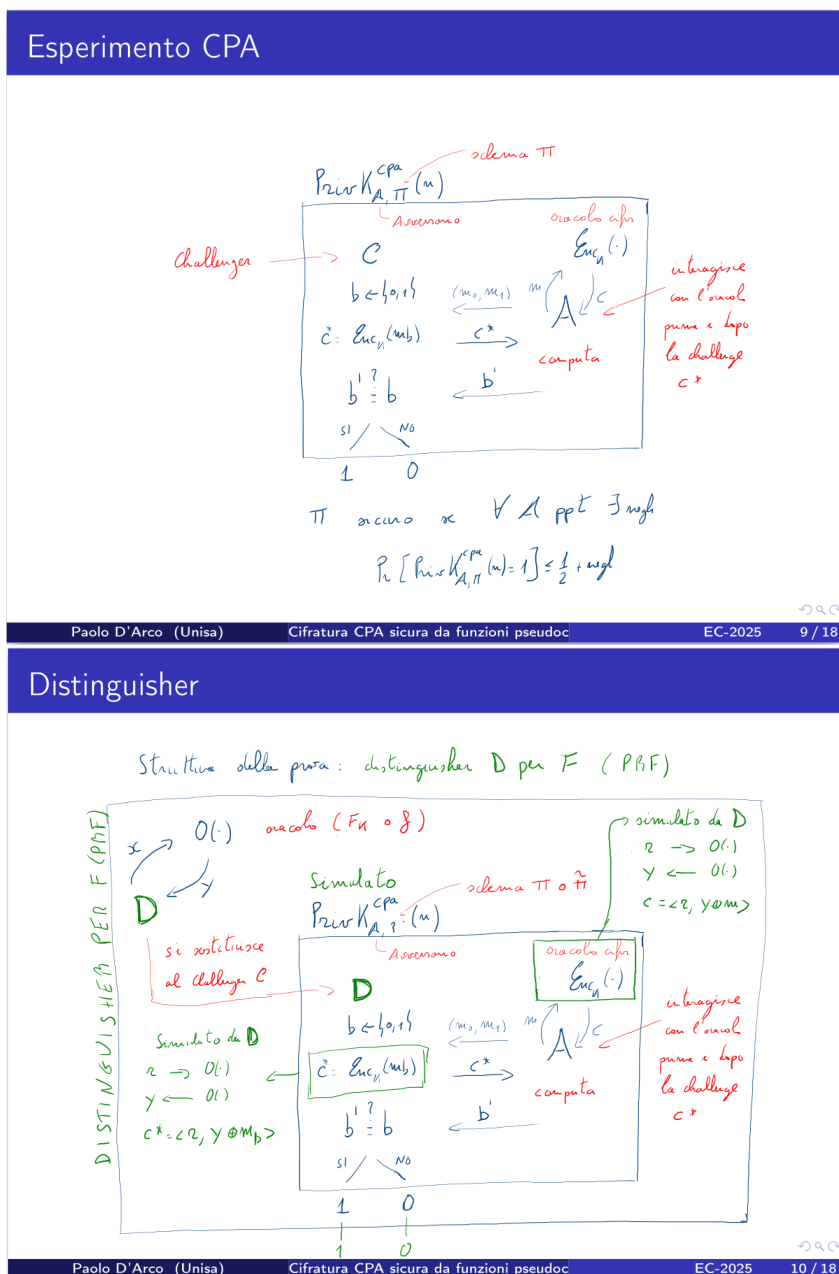 Esperimento CPA
schema Π
PrivK^cpa_A,Π (n)
Avversario
oracolo cifr
Challenger
C
Enc_k(·)
b ← {0,1}
(m0, m1)
m
c
A
interagisce
con l'oracol
prima e dopo
la challenge
c*
c* = Enc_k(mb)
c*
computa
b' ?= b
b'
SI NO
1 0
Π sicuro se ∀ A ppt ∃ negl
Pr [PrivK^cpa_A,Π (n) = 1] ≤ 1/2 + negl
Paolo D'Arco (Unisa) Cifratura CPA sicura da funzioni pseudoc EC-2025 9 / 18
Distinguisher
Struttura della prova: distinguisher D per F (PRF)
DISTINGUISHER PER F (PRF)
x
O(·)
oracolo (Fk o f)
y
D
simulato da D
r → O(·)
y ← O(·)
c = <r, y⊕m>
Simulato
schema Π o Π̃
PrivK^cpa_A,? (n)
Avversario
oracolo cifr
Enc_k(·)
si sostituisce
al Challenger C
D
b ← {0,1}
(m0, m1)
m
c
A
interagisce
con l'oracol
prima e dopo
la challenge
c*
Simulato da D
r → O(·)
y ← O(·)
c* = <r, y⊕mb>
c* = Enc_k(mb)
c*
computa
b' ?= b
b'
SI NO
1 0
1 0
Paolo D'Arco (Unisa) Cifratura CPA sicura da funzioni pseudoc EC-2025 10 / 18